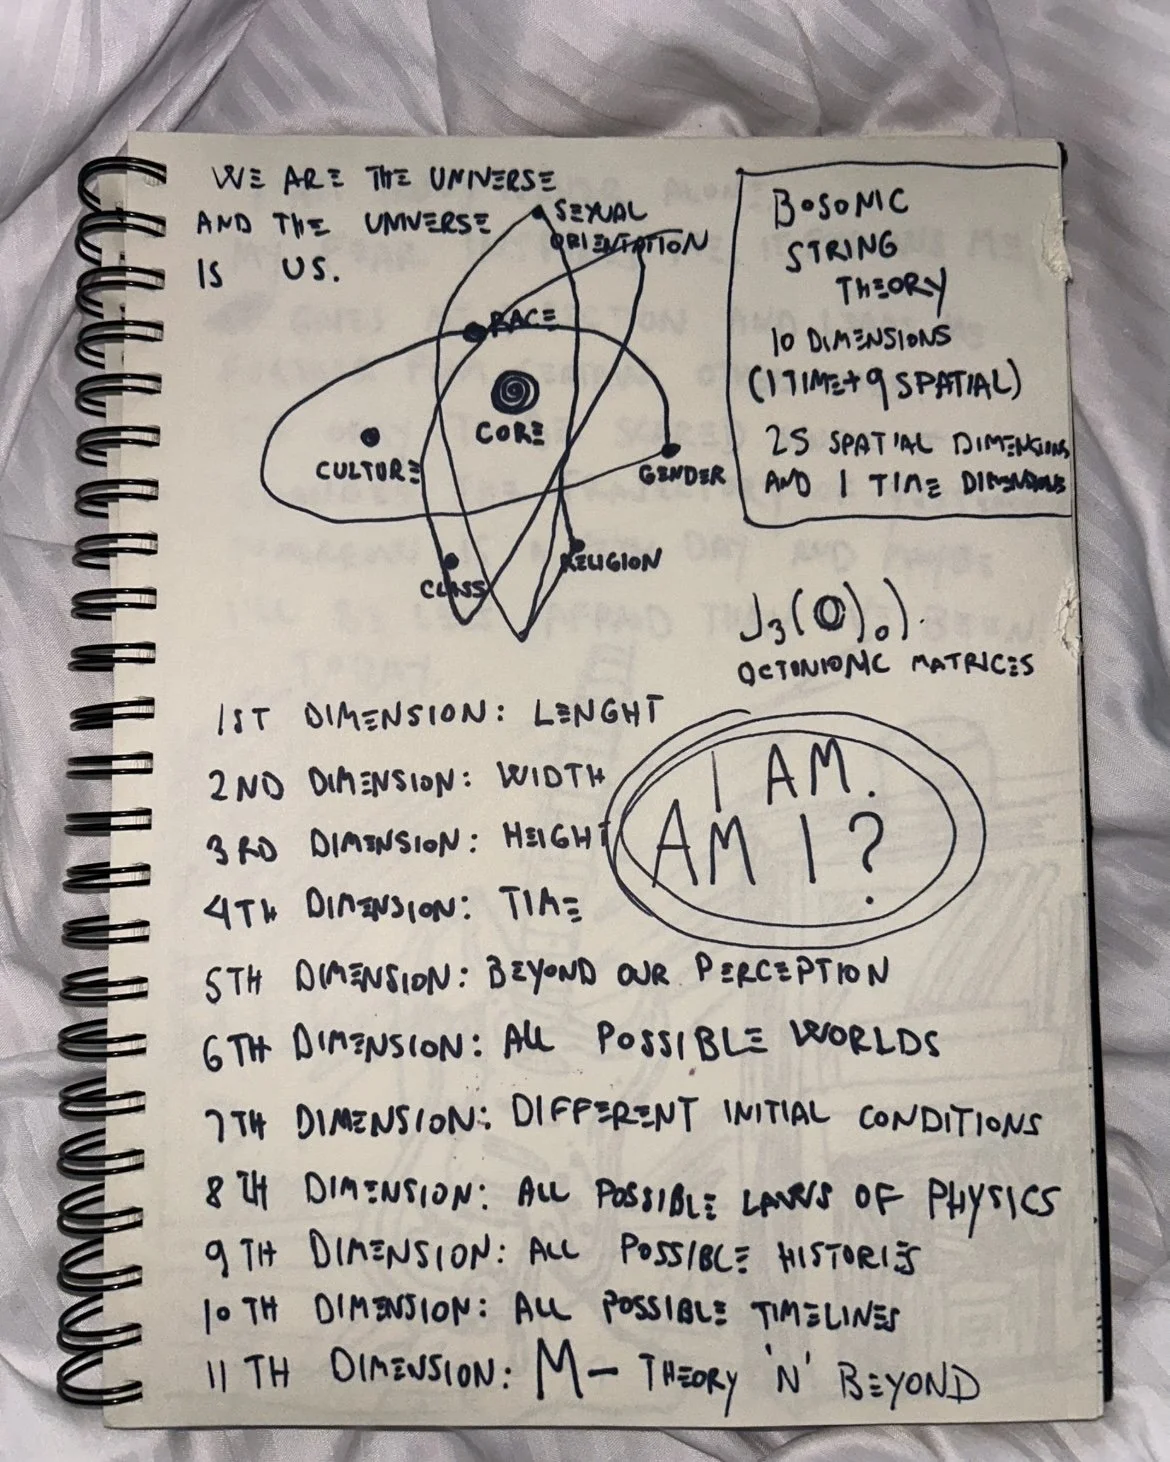 WE ARE THE UNIVERSE
AND THE UNIVERSE
IS US.
SEXUAL
ORIENTATION
RACE
CORE
CULTURE
GENDER
CLASS
RELIGION
BOSONIC
STRING
THEORY
10 DIMENSIONS
(1 TIME + 9 SPATIAL)
25 SPATIAL DIMENSIONS
AND 1 TIME DIMENSIONS
J₃(O)₀).
OCTONIONIC MATRICES
1ST DIMENSION: LENGHT
2ND DIMENSION: WIDTH
3RD DIMENSION: HEIGHT
4TH DIMENSION: TIME
I AM.
AM I?
5TH DIMENSION: BEYOND OUR PERCEPTION
6TH DIMENSION: ALL POSSIBLE WORLDS
7TH DIMENSION: DIFFERENT INITIAL CONDITIONS
8TH DIMENSION: ALL POSSIBLE LAWS OF PHYSICS
9TH DIMENSION: ALL POSSIBLE HISTORIES
10TH DIMENSION: ALL POSSIBLE TIMELINES
11TH DIMENSION: M- THEORY 'N' BEYOND